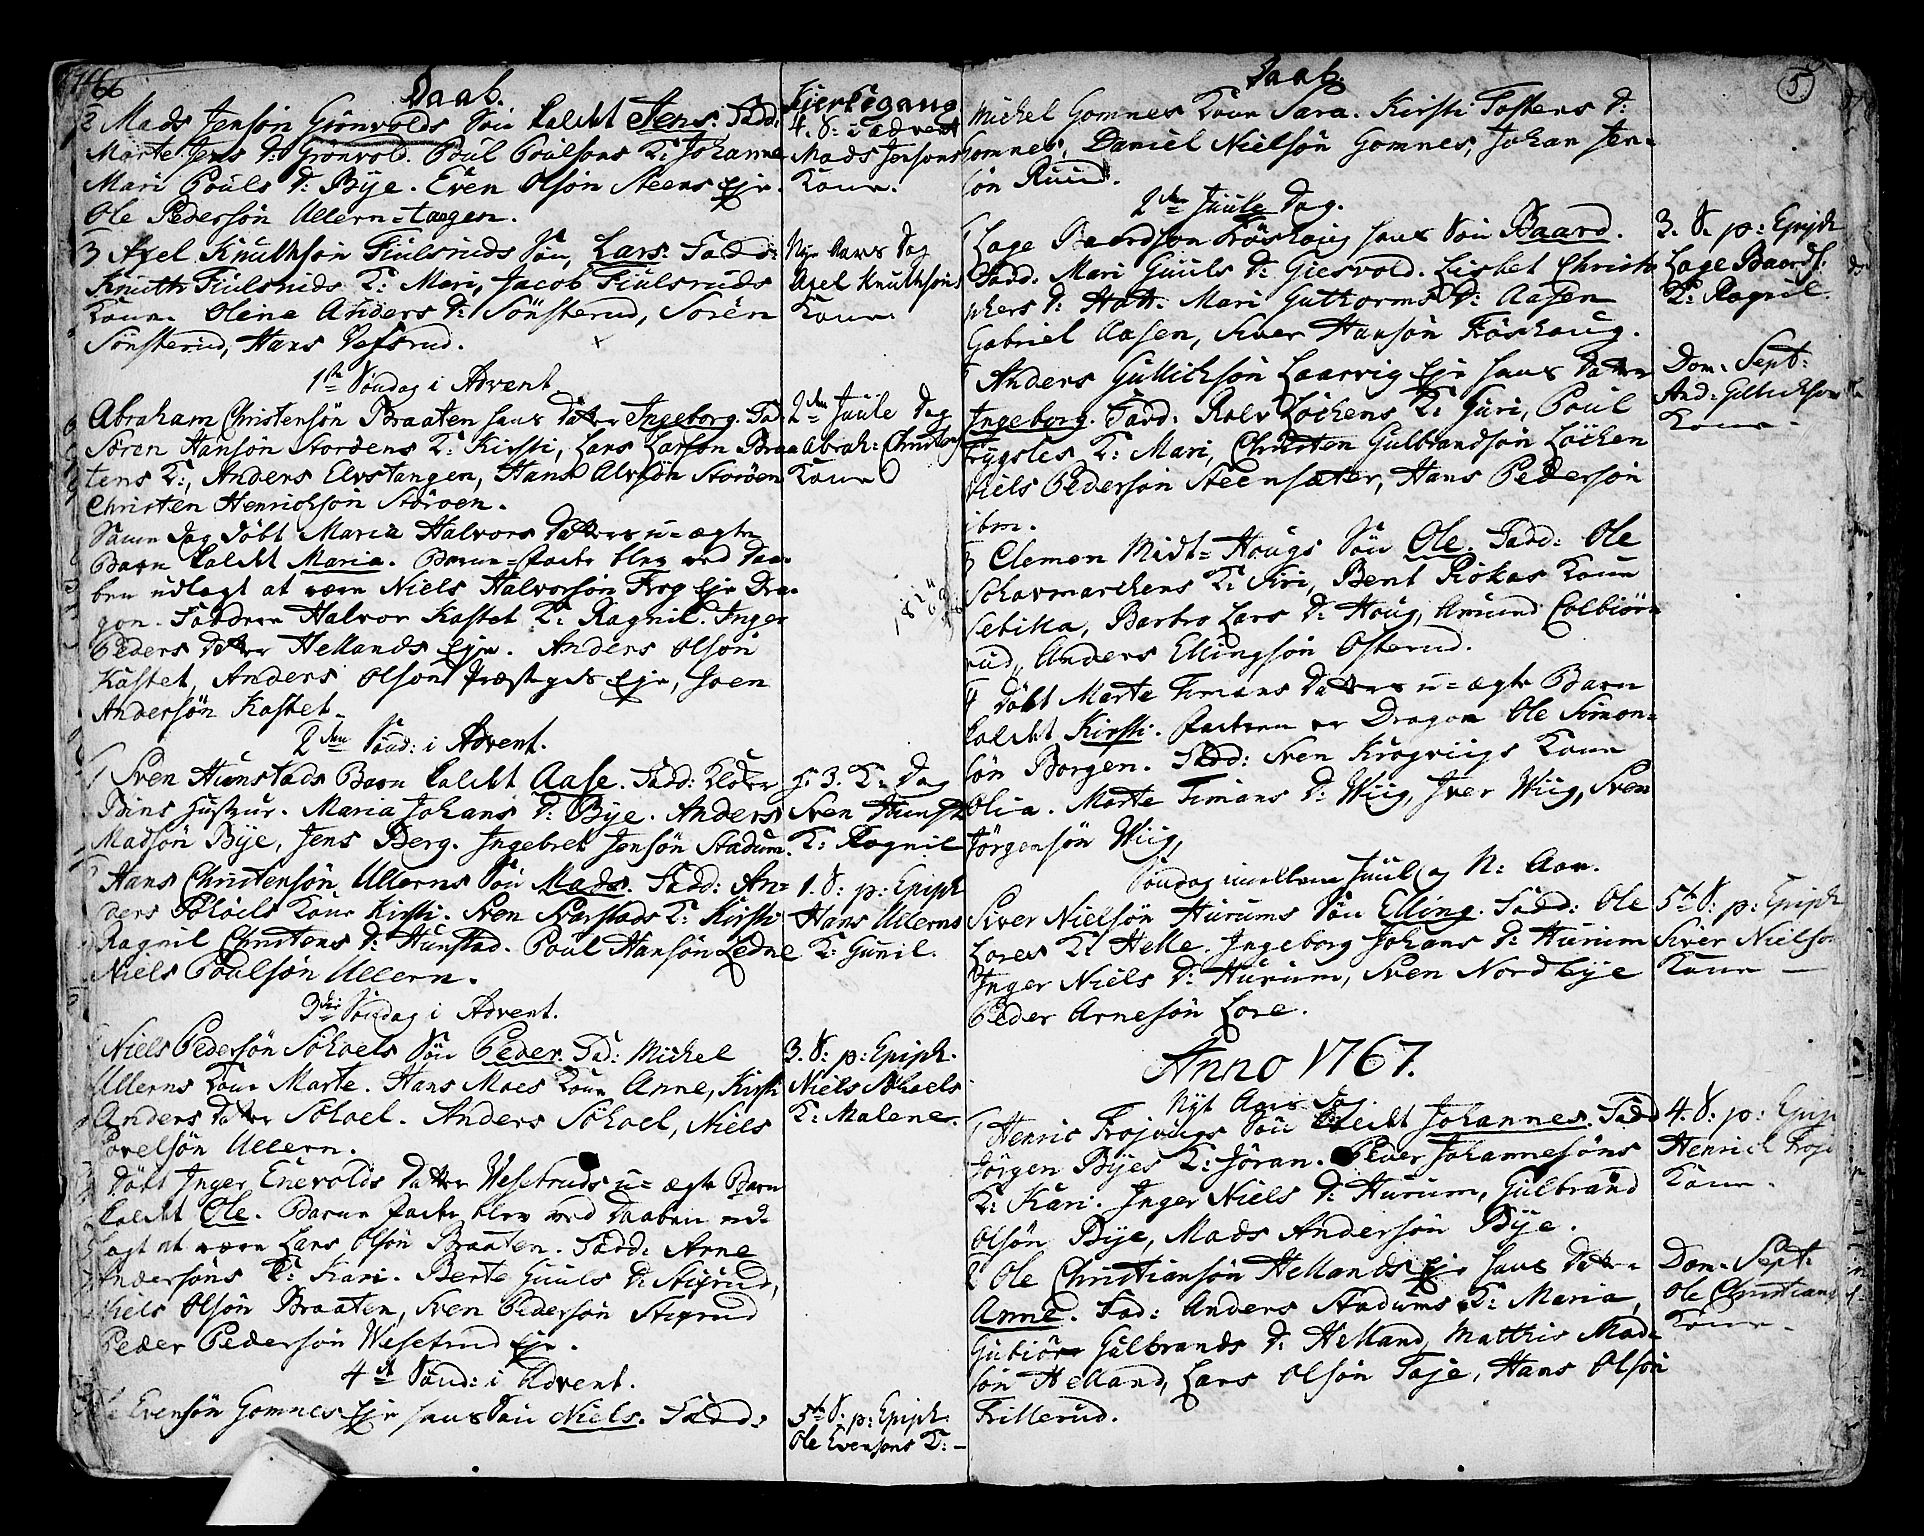 1766
Daab.
2 Mads Jensön Grönvolds Sön kaldet Jens. Fadd:
Marte Jens D: Grönvold. Poul Poulsöns K: Johanne
Mari Pouls D: Bije. Even Olsön Steens Eje.
Ole Pedersön Ullern=tangen.
3 Axel Knuthsön Fiulsruds Sön, Lars. Fadd:
Knuth Fiulsruds K: Mari, Jacob Fiulsruds
Kone. Oline Anders D: Sönsterud, Sören
Sönsterud, Hans
1ste Söndag i Advent
Abraham Christensön Braaten hans Datter Ingeborg. Fad:
Sören Hansön Stordens K: Kirsti, Lars Larsön Braa
tens K:, Anders Elvstangen, Hans Alvsön Storöen
Christen Henrichsön Störoen.
Samme Dag döbt Maria Halvors Datters u=ægte
Barn kaldet Maria. Barne=fader blev ved Daa=
ben udlagt at være Niels Halvorsön Frog Eje Dra=
gon. Faddere Halvor Kastet K: Ragnil. Inger
Peders Datter Hellands Eje. Anders Olsön
Kastet, Anders Olson Præstgds Eje, Joen
Andersön Kastet.
2den Sönd: i Advent.
1 Sven Hunstads Barn kaldet Aase. Fadd:
Hustrue. Maria Johans D: Bije. Anders
Madsön Bije, Jens Berg. Ingebret Jensön Stadum.
Hans Christensön Ullerns Sön Mads. Fadd: An=
ders Sohoels Kone Kirsti. Sven Svarstads K: Kirsti
Ragnil Christens D: Hunstad. Poul Hansön Ledne
Niels Poulsön Ullern.
3die Söndag i Advent.
Niels Pedersön Sohoels Sön Peder. Fad: Michel
Ullerns Kone Marte. Hans Moes Kone Anne, Kirsti
Anders Datter Sohoel. Anders Sohoel, Niels
Povelsön Ullern.
Döbt Inger Enevolds Datter Wesetruds u= ægte Barn
kaldet Ole. Barne Fader blev ved Daaben ud=
lagt at være Lars Olsön Braaten. Fadd: Arne
Andersöns K: Kari. Berte Guuls D: Stigrud,
Niels Olsön Braaten, Sven Pedersön Stigrud
Peder Pedersön Wesetrud Eje.
4de Sönd: i Advent.
Ole Evensön Gomnes Eje hans Sön Niels. Fadd:
Kierkegang
4. S: i Advent
Mads Jensöns
Kone.
Nye Aars Dag
Axel Knuthsöns
Kone.
2den Juule Dag
Abrah: Christens
Kone
H. 3. K: Dag
Sven Hunst:
K: Ragnil
1. S: p: Epiph
Hans Ullerns
K: Gunil.
3. S: p: Epiph.
Niels Sohoels
K: Malene.
5te S: p: Epiph.
Ole Evensöns K: –
Daab.
5
Michel Gomnes Kone Sara. Kirsti Tostens D:
Gomnes, Daniel Nielsön Gomnes, Johan Jen=
sön Ruud.
2den Juule Dag.
1 Lage Baardson Fröshoug hans Sön Baard.
Fadd. Mari Guuls D: Giesvold. Lisbet Christo
phers D: Hatt. Mari Guttorms D: Aasen
Gabriel Aasen, Siver Hansön Fröshoug.
Anders Gullichsön Laarvig Eje hans Datter
Ingeborg. Fadd: Rolv Löchens K: Guri, Poul
Frygsles K: Mari, Christen Gulbrandsön Löchen
Niels Pedersön Steensæter, Hans Pedersön
ibm.
3 Clemen Midt=Hougs Sön Ole. Fadd: Ole
Schavmarchens K: Siri, Bent Rökas Kone
Sebilla, Barbro Lars D: Houg, Amund Colbiörn
rud, Anders Ellingsön Osterud.
4 Döbt Marte Timans Datters u=ægte Barn
kaldet Kirsti. Faderen er Dragon Ole Simon=
sön Borgen. Fadd: Sven Krogviigs Kone
Olia. Marte Timans D: Wiig, Iver Wiig, Sven
Jörgensön Wiig,
Söndag imellem Juul og N: Aar.
Siver Nielsön Hurums Sön Elling. Fadd: Ole
Lores K: Helle. Ingeborg Johans D: Hurum
Inger Niels D: Hurum, Sven Nordbye
Peder Arnesön Lore.
Anno 1767.
Nyt Aars Dag.
1 Henric Frojougs Sön kaldet Johannes. Fadd
Jörgen Bijes K: Jöran. Peder Johannesöns
K: Kari. Inger Niels D: Hurum, Gulbrand
Olsön Bije, Mads Andersön Bije.
2 Ole Christiansön Hellands Eje hans Datter
Anne. Fad: Anders Stadums K: Maria,
Gubiör Gulbrands D: Helland, Mathis Mad=
sön Helland, Lars Olsön Faje, Hans Olsön
Frillerud.
3. S. p: Epiph
Lage Baards:
K: Ragnil.
Dom. Sept:
And: Gullichsöns
Kone.
5te S: p: Epiph
Siver Nielsön
Kone –
4. S: p: Epip
Henrich Froj
Kone.
Dom. Sept:
Ole Christians
Kone.